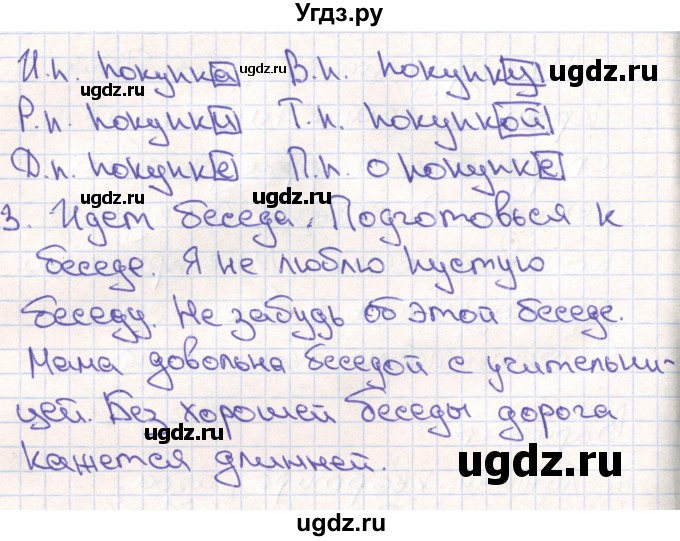 Угдз.ру
И.п. покупка ugdz.ru В.п. покупку ugdz.ru
ugdz.ru
Р.п. покупки Т.п. покупкой
Д.п. покупке П.п. о покупке
ugdz.ru ugdz.ru
3. Идет беседа. Подготовься к
беседе. Я не люблю пустую
беседу. Не забудь об этой беседе.
ugdz.ru ugdz.ru
Мама довольна беседой с учительни-
цей. Без хорошей беседы дорога
ugdz.ru
кажется длинней. ugdz.ru
ugdz.ru